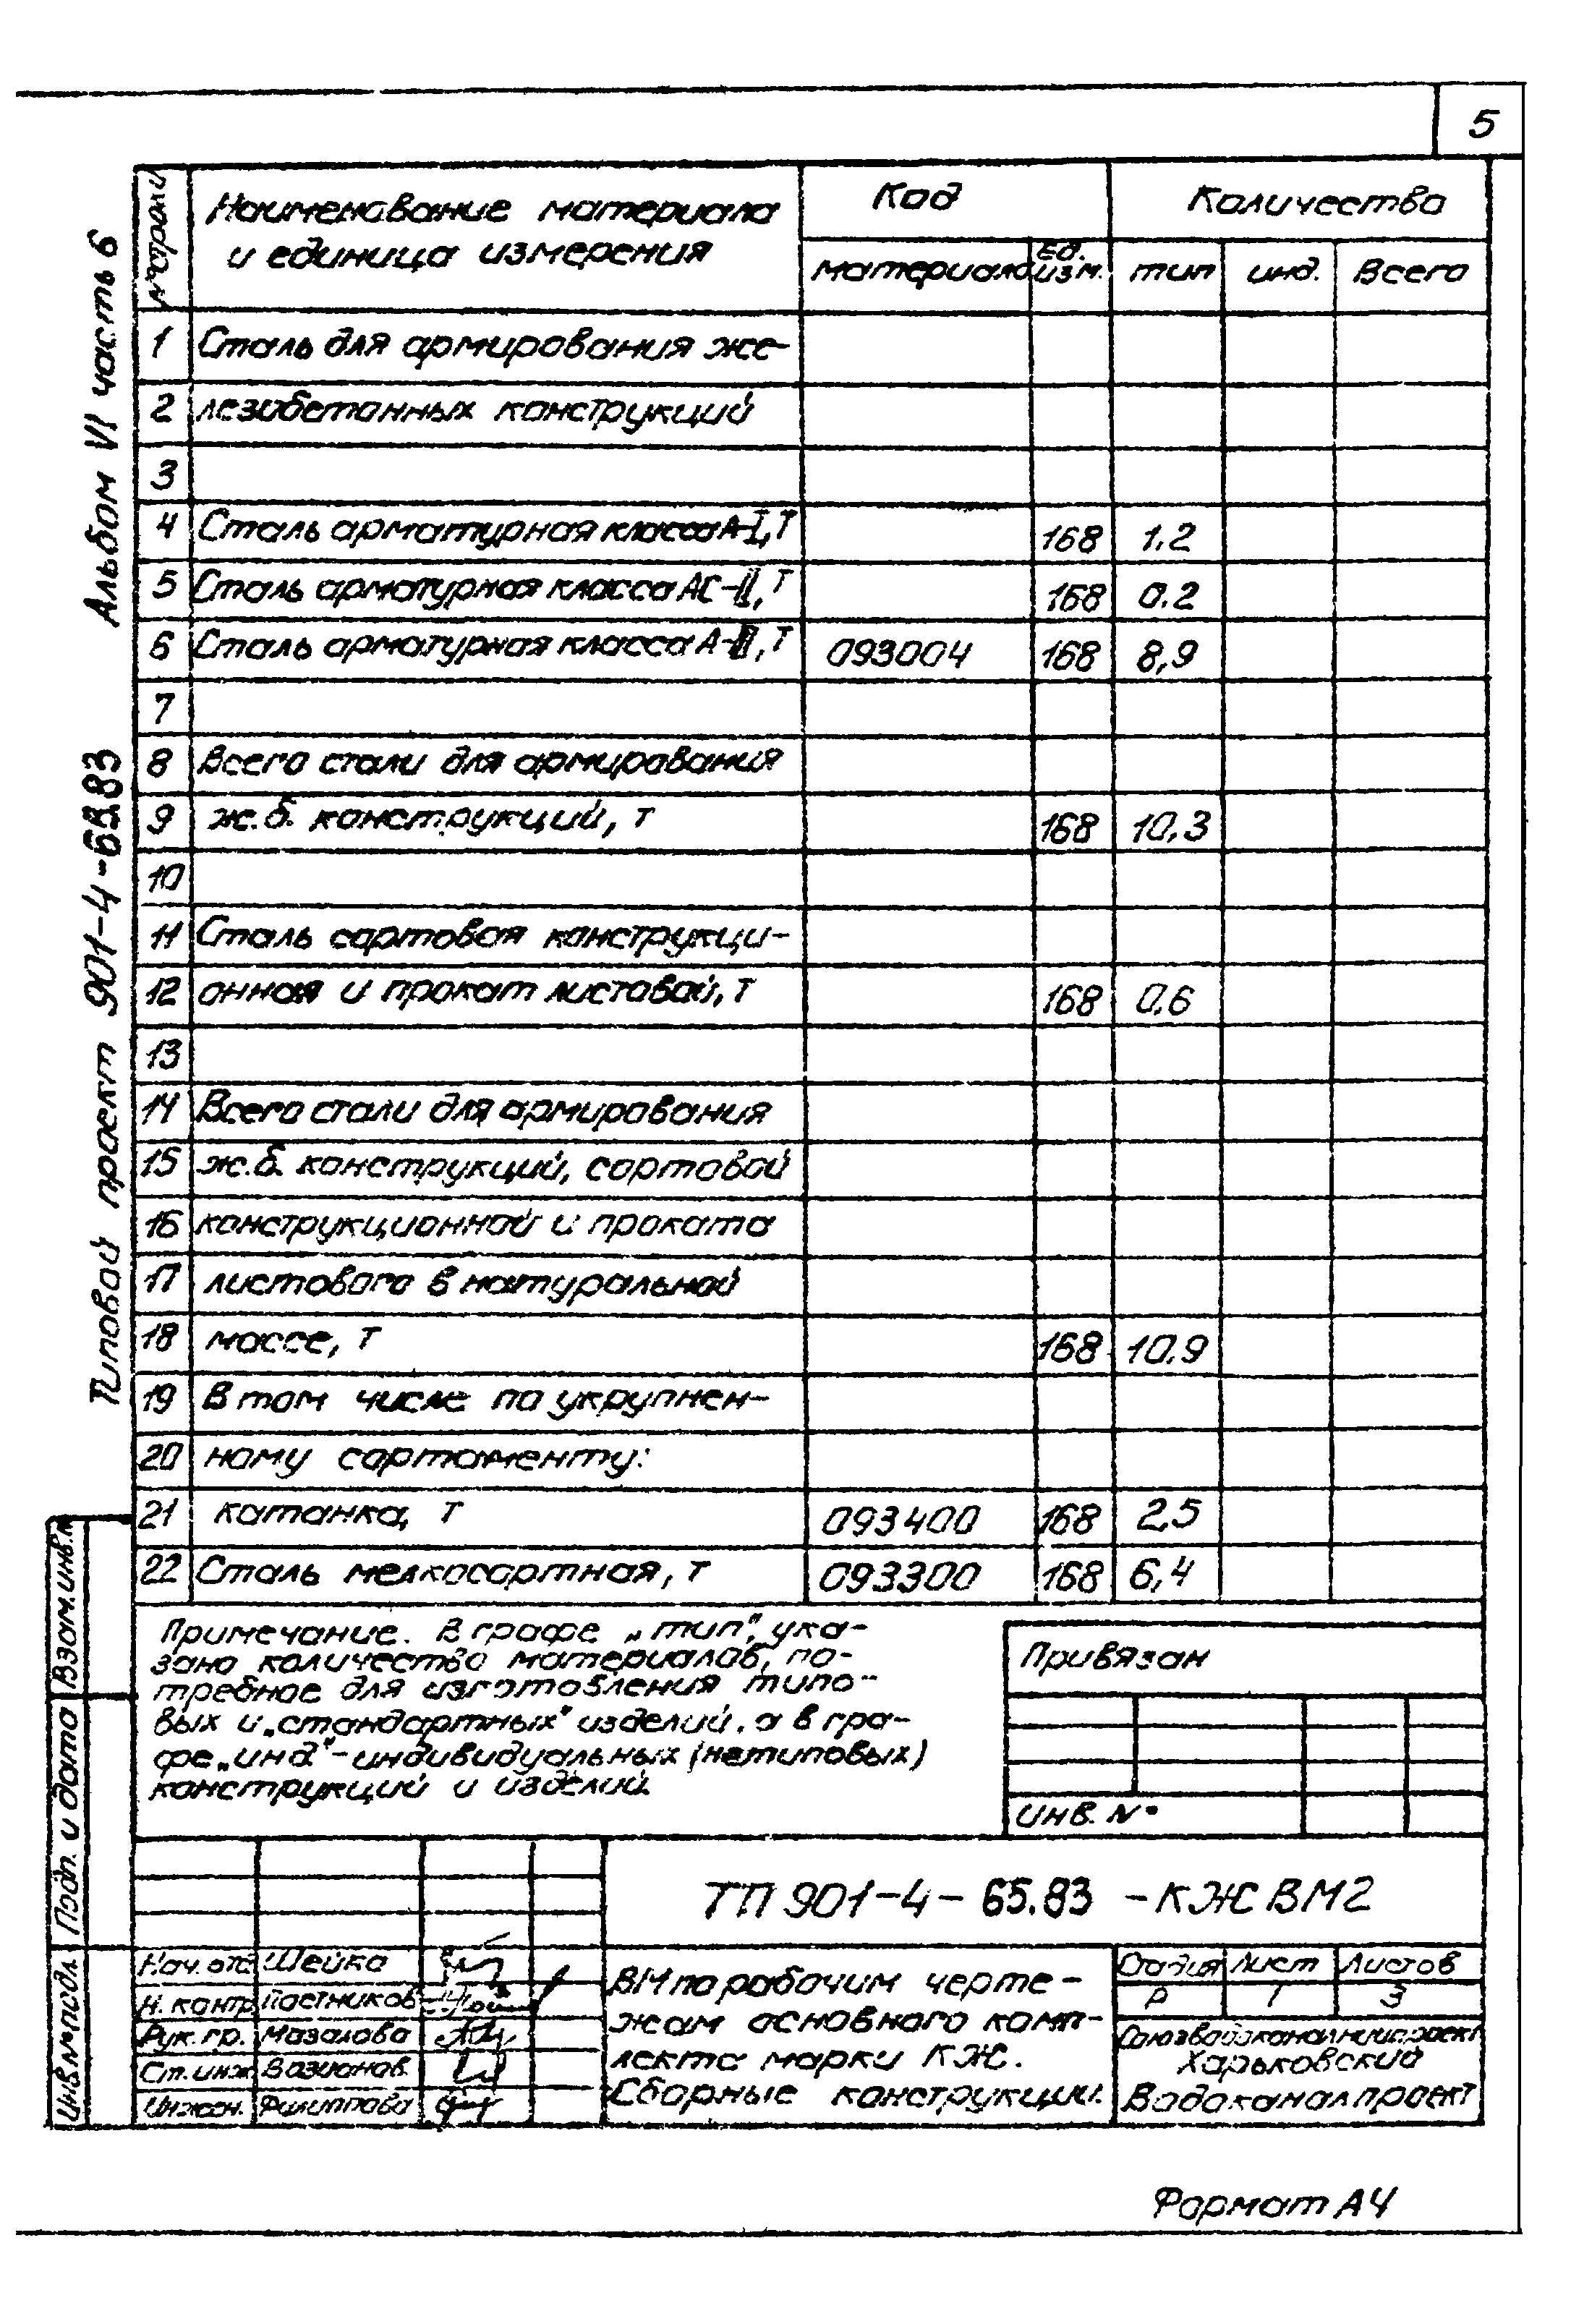 5
Альбом VI часть 6
Типовой проект 901-4-65.83
№ строки
Наименование материала
и единица измерения
Код
Количество
материала
Ед.
изм.
тип
инд.
Всего
1 Сталь для армирования же-
2 лезобетонных конструкций
3
4 Сталь арматурная класса А-I, Т 168 1.2
5 Сталь арматурная класса АС-II, Т 168 0.2
6 Сталь арматурная класса А-III, Т 093004 168 8,9
7
8 Всего стали для армирования
9 ж.б. конструкций, т 168 10,3
10
11 Сталь сортовая конструкци-
12 онная и прокат листовой, т 168 0,6
13
14 Всего стали для армирования
15 ж.б. конструкций, сортовой
16 конструкционной и проката
17 листового в натуральной
18 массе, т 168 10.9
19 В том числе по укрупнен-
20 ному сортаменту:
21 катанка, т 093400 168 2,5
22 Сталь мелкосортная, т 093300 168 6,4
Примечание. В графе „тип", ука-
зано количество материалов, по-
требное для изготовления типо-
вых и „стандартных" изделий, а в гра-
фе „инд" - индивидуальных (нетиповых)
конструкций и изделий.
Привязан
Инв. №
Взам. инв. №
Подп. и дата
Инв. № подл.
ТП 901-4-65.83 -КЖ ВМ2
Нач. отд. Шейко
Н. контр. Постников
Рук. гр. Мазалова
Ст. инж. Вазианов
Инжен. Филиппова
ВМ по рабочим черте-
жам основного комп-
лекта марки КЖ.
Сборные конструкции.
Стадия Лист Листов
Р 1 3
Союзводоканалниипроект
Харьковский
Водоканалпроект
Формат А4